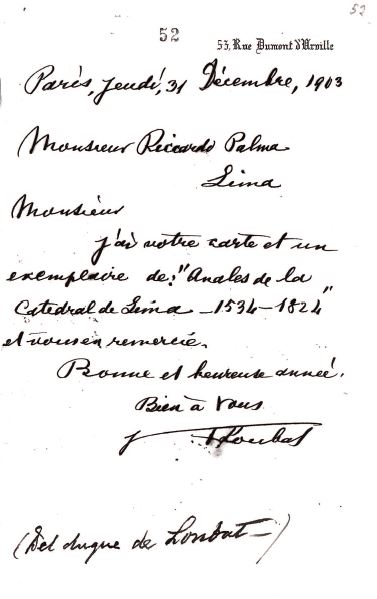 52
52
53, Rue Dumont d'Urville
Paris, Jeudi, 31 Décembre, 1903
Monsieur Ricardo Palma
Lima
Monsieur
j'ai votre carte et un
exemplaire de: "Anales de la
Catedral de Lima - 1534-1824"
et vous en remercie.
Bonne et heureuse année.
Bien à vous
Loubat
(Del duque de Loubat-)